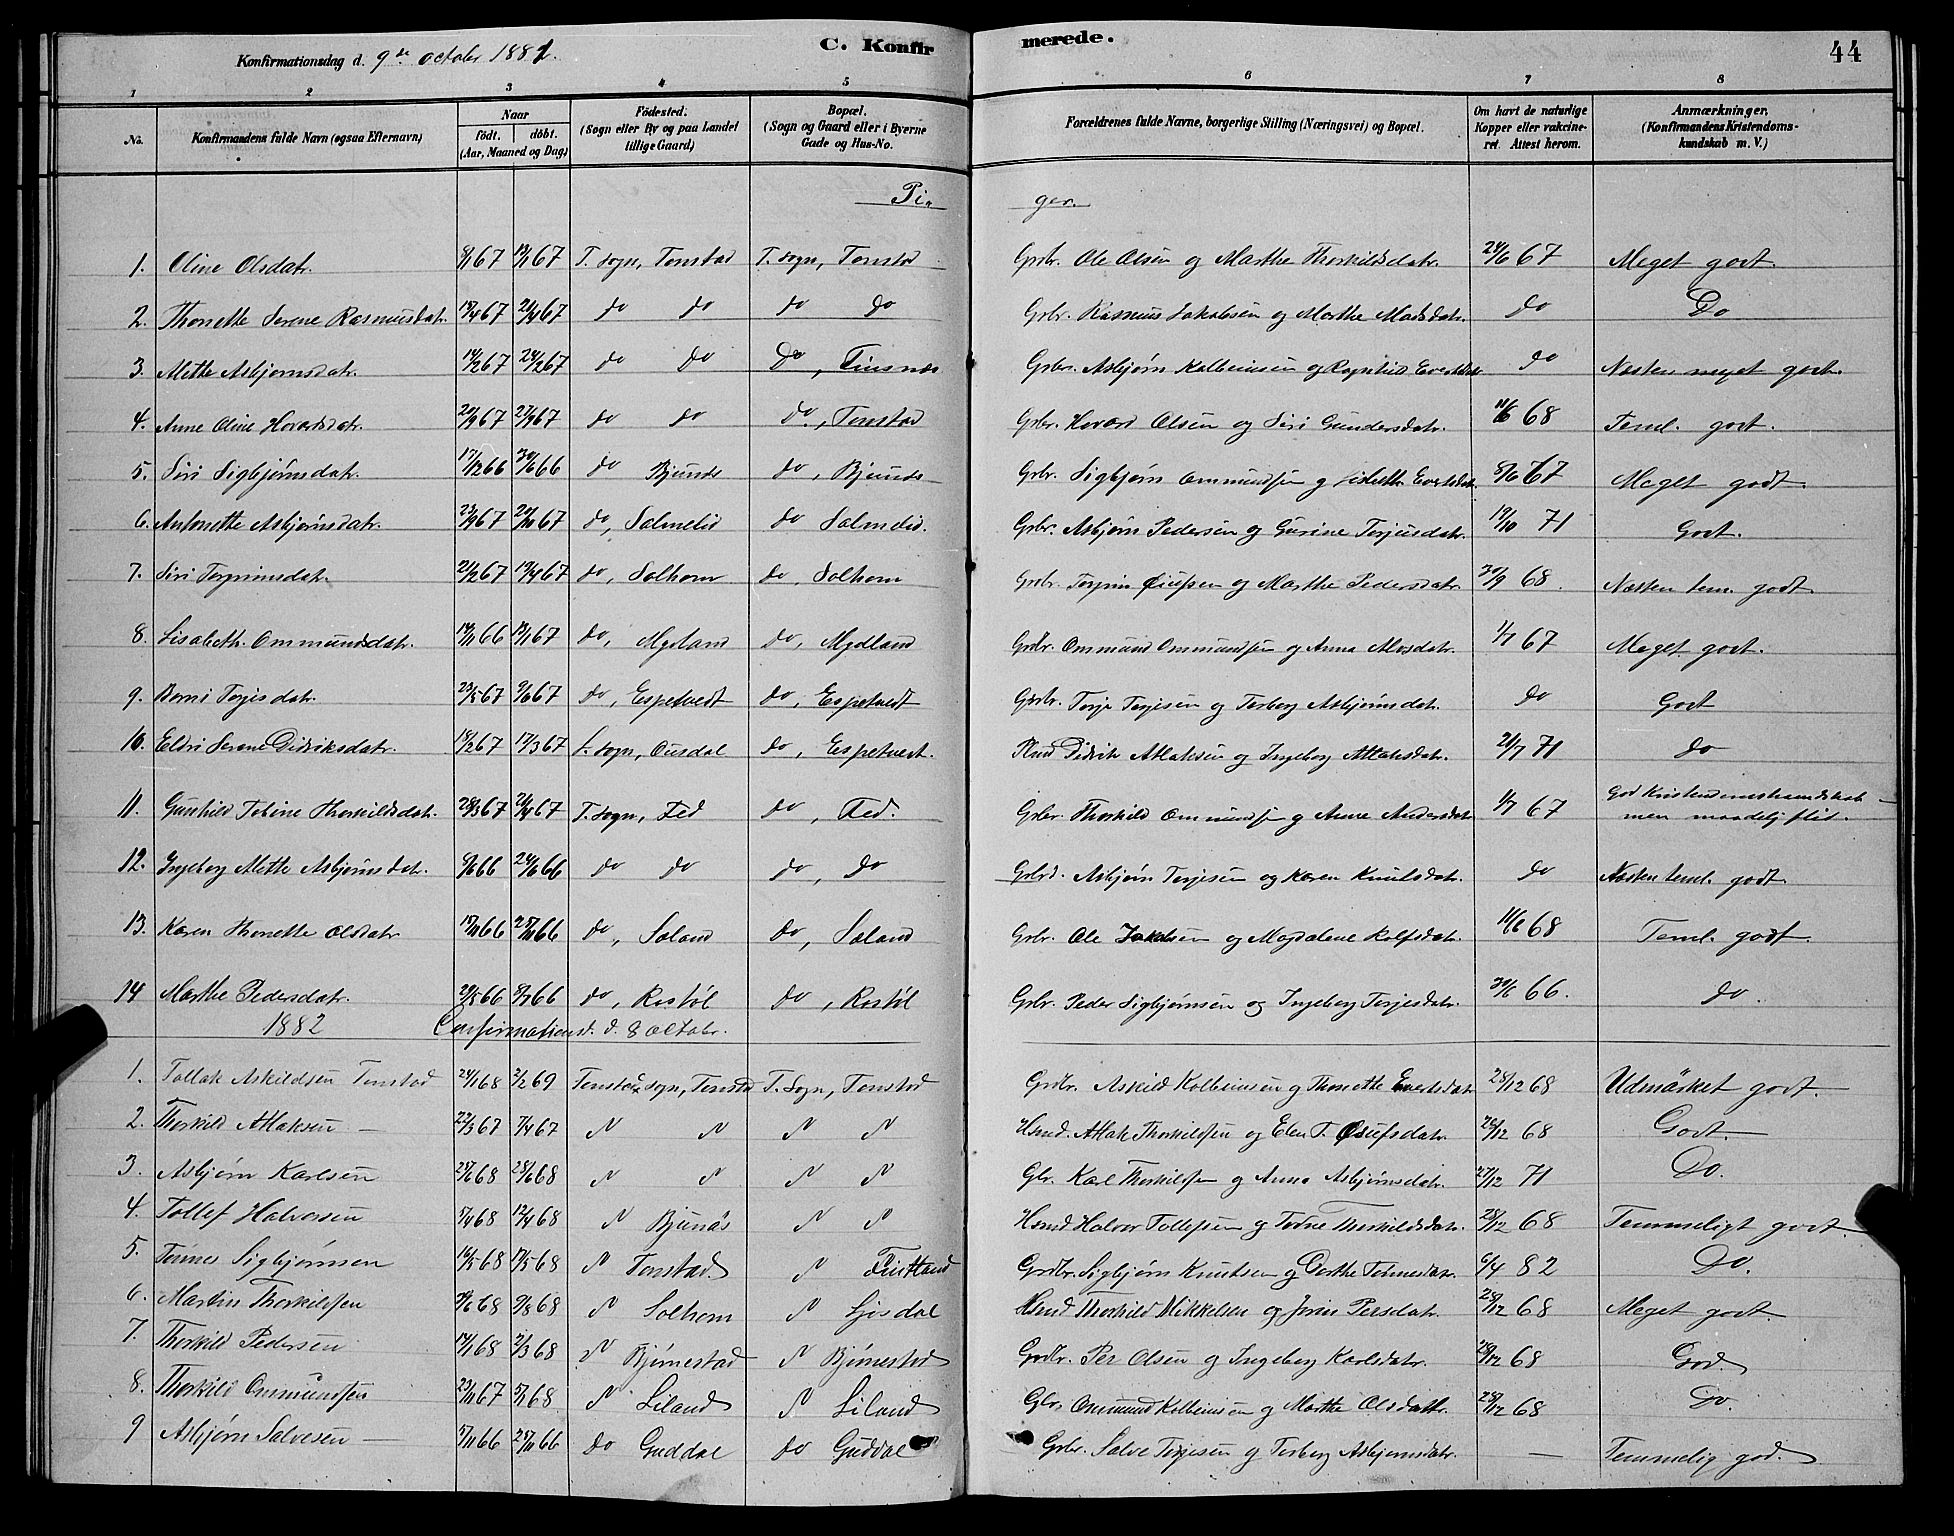 C. Konfirmerede.
44
Konfirmationsdag d. 9de october 1881.
1 2 3 4 5 6 7 8
No. Konfirmandens fulde Navn (ogsaa Efternavn) Naar født. døbt. (Aar, Maaned og Dag) Fødested. (Sogn eller By og paa Landet tillige Gaard) Bopæl. (Sogn og Gaard eller i Byerne Gade og Hus-No. Forældrenes fulde Navne, borgerlige Stilling (Næringsvei) og Bopæl. Om havt de naturlige Kopper eller vakcineret. Attest herom. Anmærkninger. (Konfirmandens Kristendomskundskab m. V.)
Piger.
1. Oline Olsdatr. 8/1 67 13/1 67 T. sogn, Tonstad T. sogn, Tonstad Grbr. Ole Olsen og Marthe Thorkildsdatr. 28/6 67 Meget godt.
2. Thonette Serene Rasmusdatr. 15/4 67 21/4 67 do do do do Grbr. Rasmus Jakobsen og Marthe Madsdatr. do Do
3. Mette Asbjørnsdatr. 14/2 67 24/2 67 do do Do, Finsnæs Grbr. Asbjørn Kolbeinsen og Ragnhild Evertsdatr do Næsten meget godt.
4. Anne Oline Hovardsdatr. 20/9 67 27/9 67 do do do., Tonstad Grbr. Hovard Olsen og Siri Gundersdatr. 11/6 68 Teml. godt.
5. Siri Sigbjørnsdatr. 17/12 66 30/6 66 do Bjunds do, Bjunds Grbr. Sigbjørn Ommundsen og Lisbeth Evertsdatr. 8/6 67 Meget godt.
6. Antonette Asbjørnsdatr. 23/9 67 20/10 67 do, Salmelid do Salmelid. Grbr. Asbjørn Pedersen og Gurine Torjusdatr. 19/10 71 Godt.
7. Siri Torgrimsdatr. 21/2 67 19/4 67 do, Solhom do, Solhom Grbr. Torgrim Eiufsen og Marthe Pedersdatr. 30/9 68. Næsten tem. godt.
8. Lisabeth Ommundsdatr. 19/11 66 13/1 67 do, Mydland do, Mydland Grbr. Ommund Ommundsen og Anna Alvsdatr. 1/7 67 Meget godt.
9. Berni Torjesdatr. 23/5 67 9/6 67 do, Espetvedt do, Espetvedt Grbr. Torje Torjesen og Torborg Asbjørnsdatr. do Godt
10. Eldri Serene Didriksdatr. 18/2 67 17/3 67 L. sogn, Ousdal do, Espetvedt. Didrik Atlaksen og Ingeborg Atlaksdatr. 21/7 71 do
11. Gunhild Tobine Thorkildsdatr. 28/3 67 21/4 67 T. sogn, Fed do, Fed. Grbr. Thorkild Ommundsen og Anne Andersdatr 1/7 67 God Kristendomskundskab men maadelig flid.
12. Ingeborg Mette Asbjørnsdatr. 8/6 66 24/6 66 do do do, do Grbr. Asbjørn Torjesen og Karen Knudsdatr. do Næsten teml. godt
13. Karen Thonette Olsdatr 15/11 66 25/11 66 do, Seland do, Seland Grbr. Ole Jakobsen og Magdalene Rolfsdatr. 11/6 68 Teml. godt.
14 Marthe Pedersdatr. 29/5 66 8/7 66 do, Rostøl do, Rostøl Grbr. Peder Sigbjørnsen og Ingeborg Torjesdatr. 30/6 66. do.
1882 Confirmationsd. d. 8 Octobr.
1. Tollak Askildsen Tonstad 24/1 68 2/2 69 Tonstad sogn, Tonstad T. Sogn, Tonstad Grdbr. Askild Kolbeinsen og Thonette Evertsdatr 28/12 68 Udmærket godt.
2. Thorkild Atlaksen — 22/3 67 7/4 67 " " " " Hsmd. Atlak Thorkildsen og Elen T. Eiufsdatr 28/12 68 Godt.
3. Asbjørn Karlsen 25/6 68 28/6 68 " " " " Gbr. Karl Thorkildsen og Anna Asbjørnsdatr. 27/12 71 Do.
4. Tollef Halvorsen 5/4 68 12/4 68 " Bjunås " " Hsmd Halvor Tollefsen og Tobine Thorkildsdatr. 28/12 68 Temmeligt godt.
5. Tønnes Sigbjørnsen 16/5 68 17/5 68 " Tonstad " Fintland Grdbr. Sigbjørn Knutsen og Dorthe Tønnesdatr. 6/4 82 Do.
6. Martin Thorkildsen 9/6 68 9/8 68 " Solhom " Gjosdal Hsmd Thorkild Mikkelsen og Jorin Persdatr. 28/12 68 Meget godt.
7. Thorkild Pedersen 19/1 68 2/3 68 " Bjørnestad " Bjørnestad Grdbr. Per Olsen og Ingeborg Karlsdatr. 28/12 68 God
8. Thorkild Ommundsen 23/11 67 5/1 68 " Liland " Liland Gbr. Ommund Kolbeinsen og Marthe Olsdatr. 28/12 68 Do.
9 Asbjørn Salvesen — 5/11 66 25/11 66 do Guddal do Guddal Grbr. Salve Torjesen og Torborg Asbjørnsdatr. — Temmelig god.